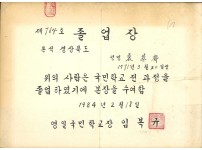 제764호 졸업장
본적 경상북도
성명
위의 사람은 국민학교 전 과정을
졸업하였기에 본장을 수여함
1984년 2월 18일
영일국민학교장 임복규